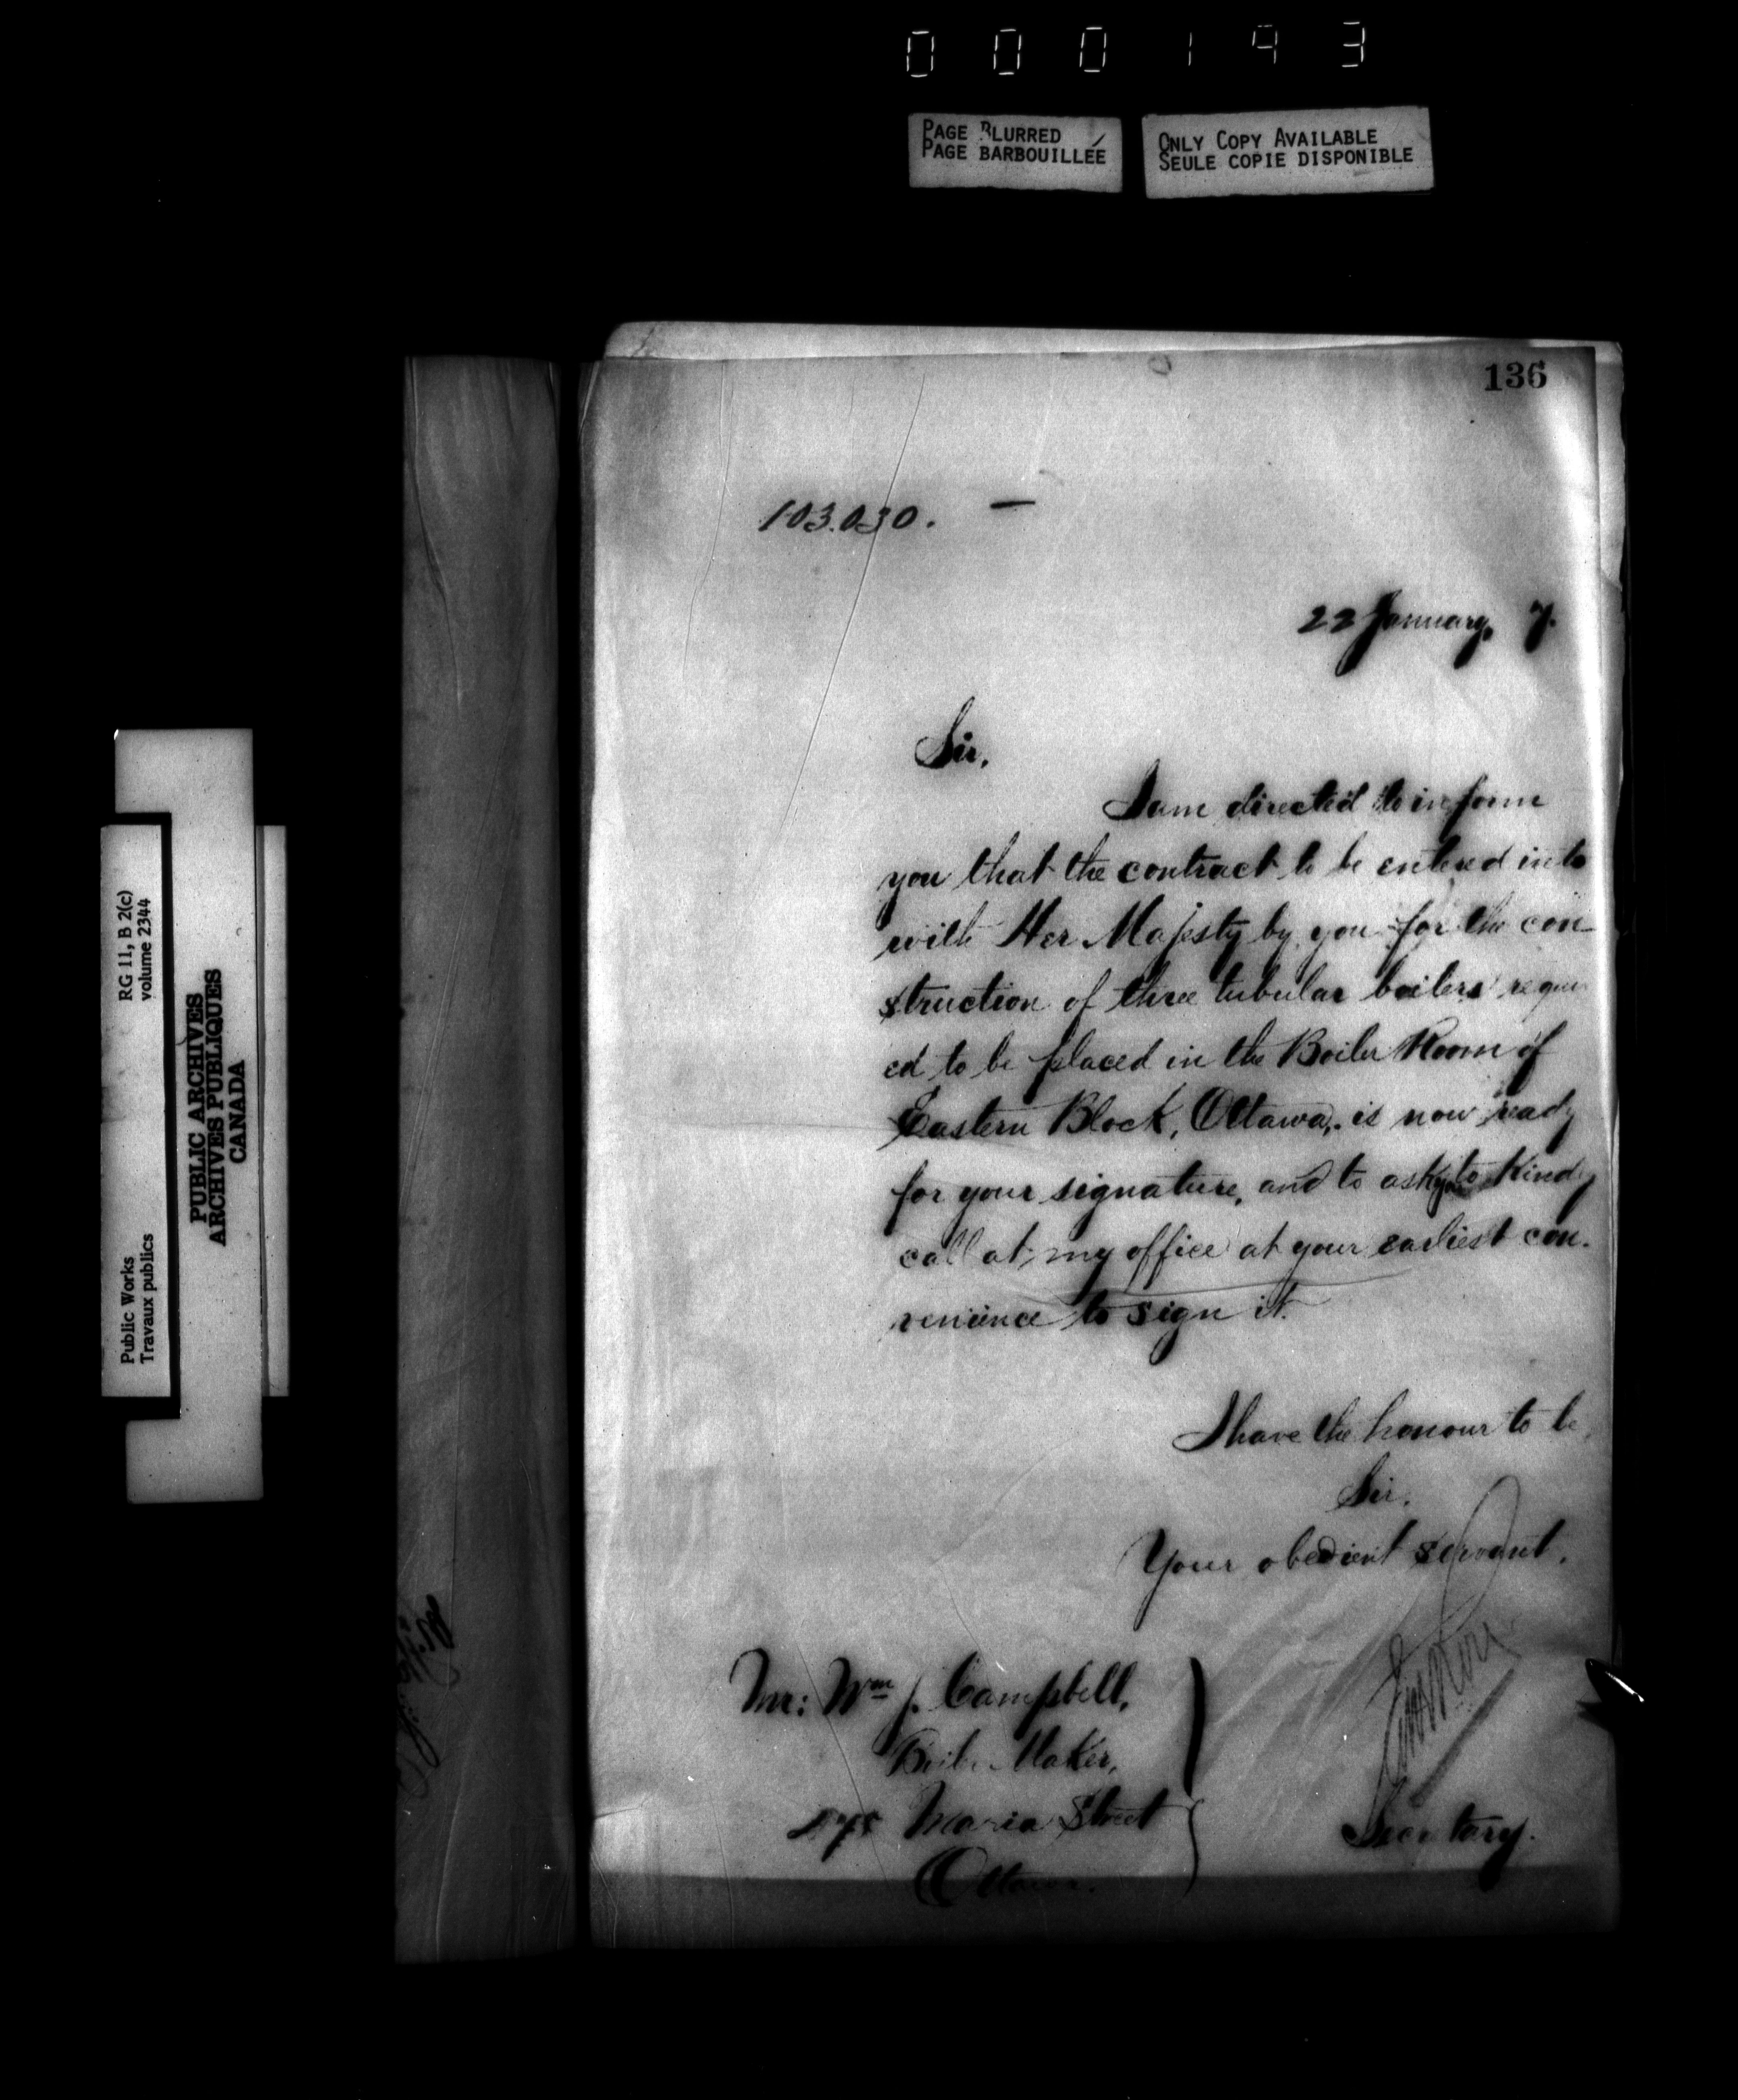 000193
PAGE BLURRED
PAGE BARBOUILLÉE
ONLY COPY AVAILABLE
SEULE COPIE DISPONIBLE
136
103.030. —
22 January, 7.
Sir,
I am directed to inform
you that the contract to be entered into
with Her Majesty by you for the con
struction of three tubular boilers requir
ed to be placed in the Boiler Room of
Eastern Block, Ottawa, is now ready
for your signature, and to ask you to kindly
call at my office at your earliest con-
venience to sign it.
I have the honour to be,
Sir,
Your obedient servant.
Mr: Wm J. Campbell,
Boiler Maker,
Maria Street
Ottawa.
Secretary.
RG 11, B 2(c)
volume 2344
Public Works
Travaux publics
PUBLIC ARCHIVES
ARCHIVES PUBLIQUES
CANADA